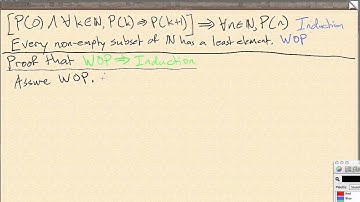 [P(0) ∧ ∀k∈ℕ, P(k) ⇒ P(k+1)] ⇒ ∀n∈ℕ, P(n) Induction
Every non-empty subset of ℕ has a least element. WOP
Proof that WOP ⇒ Induction
Assume WOP.
Red
Blue